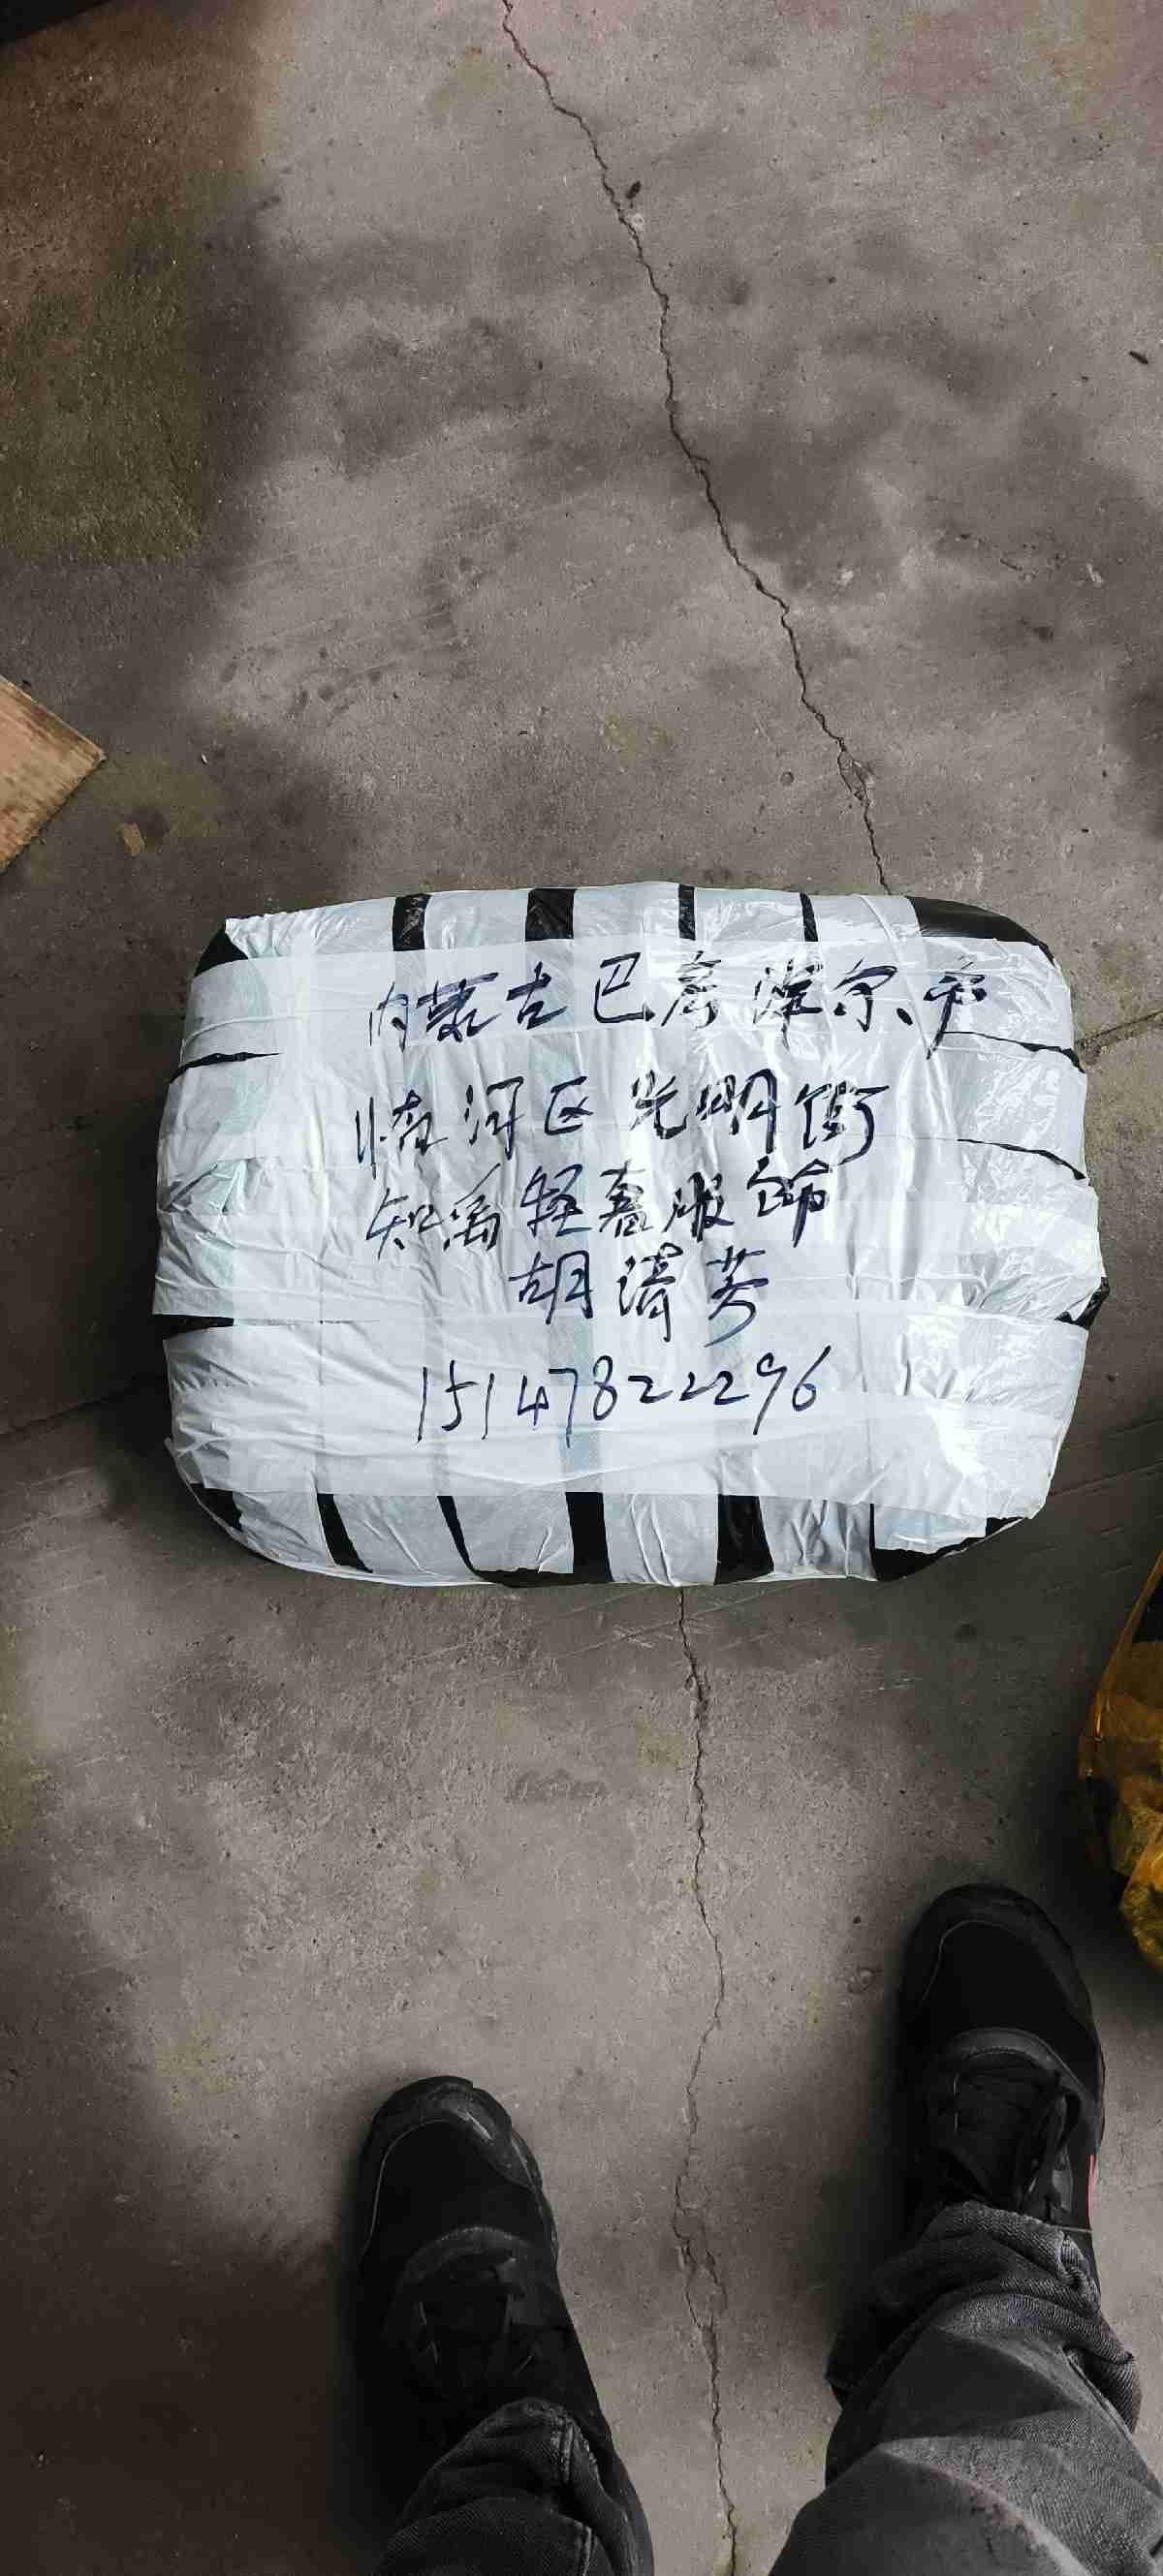 内蒙古巴彦淖尔市
临河区光明街
知禽轻奢服饰
胡清芳
15147822296